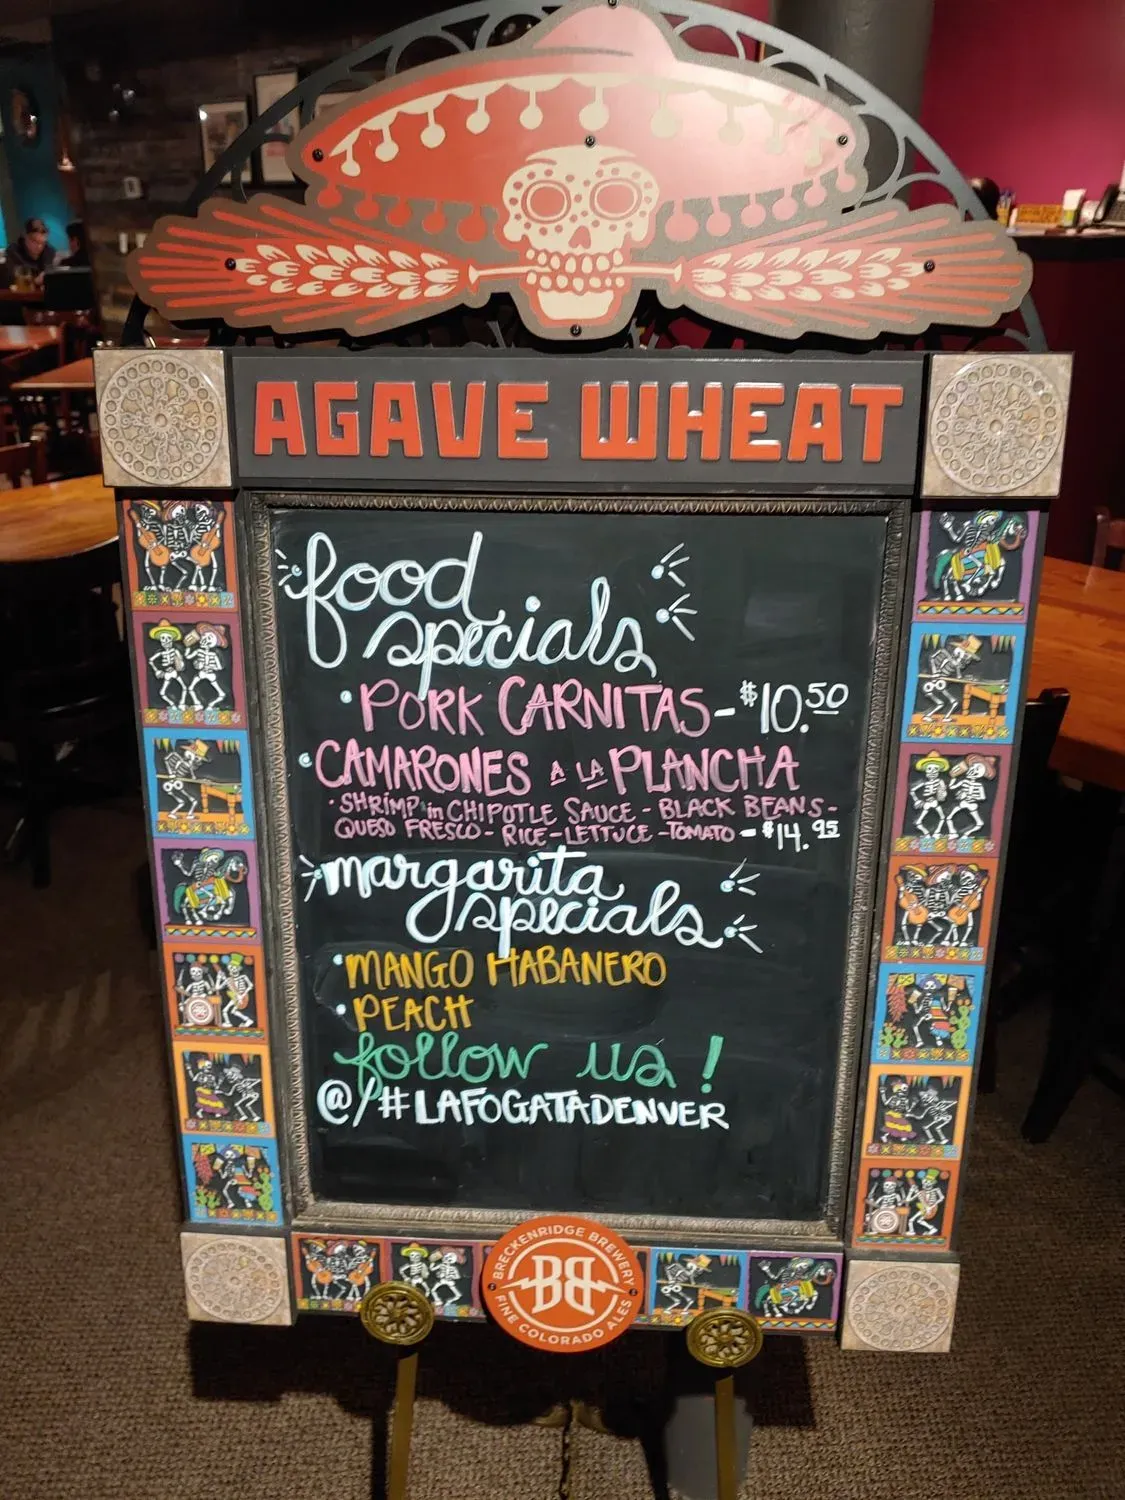 AGAVE WHEAT
food
specials
• PORK CARNITAS - $10.50
• CAMARONES A LA PLANCHA
• SHRIMP in CHIPOTLE SAUCE - BLACK BEANS -
QUESO FRESCO - RICE - LETTUCE - TOMATO - $14.95
margarita
specials
• MANGO HABANERO
• PEACH
follow us!
@/#LAFOGATADENVER
BRECKENRIDGE BREWERY
BB
FINE COLORADO ALES